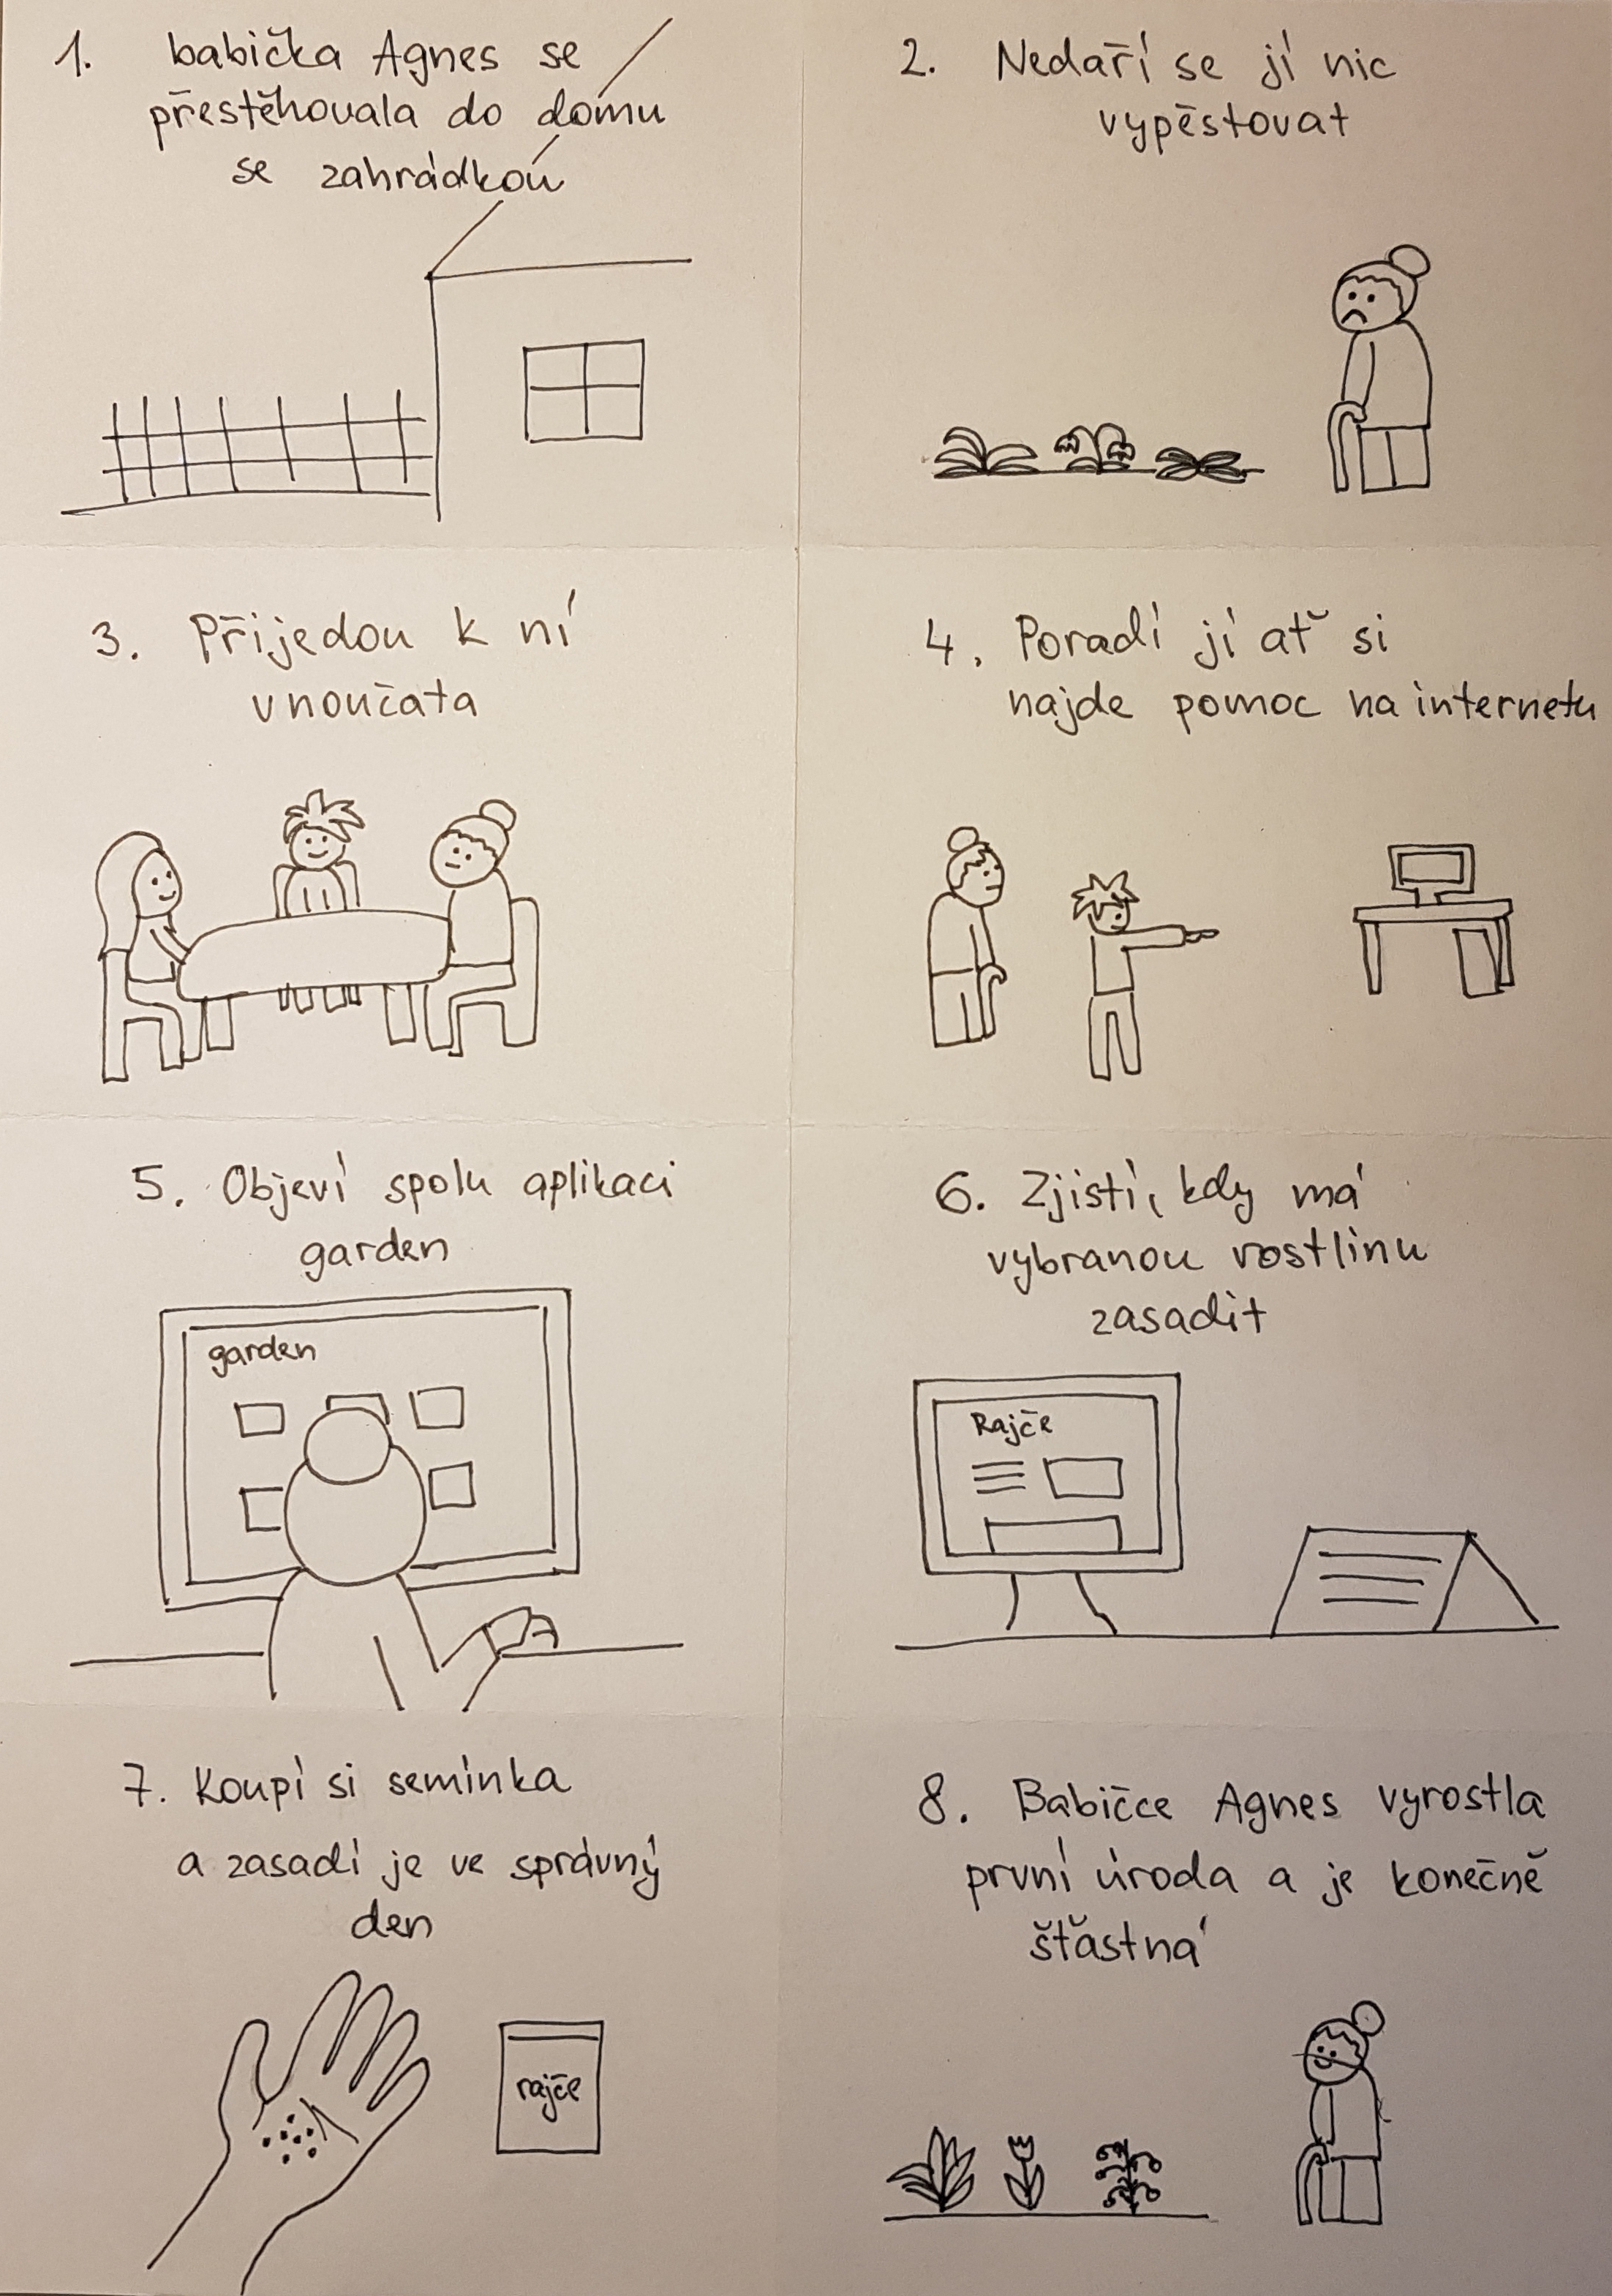 1. babička Agnes se
přestěhovala do domu
se zahrádkou
2. Nedaří se jí nic
vypěstovat
3. Přijedou k ní
vnoučata
4. Poradí jí ať si
najde pomoc na internetu
5. Objeví spolu aplikaci
garden
garden
6. Zjistí, kdy má
vybranou rostlinu
zasadit
Rajče
7. Koupí si semínka
a zasadí je ve správný
den
rajče
8. Babičce Agnes vyrostla
první úroda a je konečně
šťastná